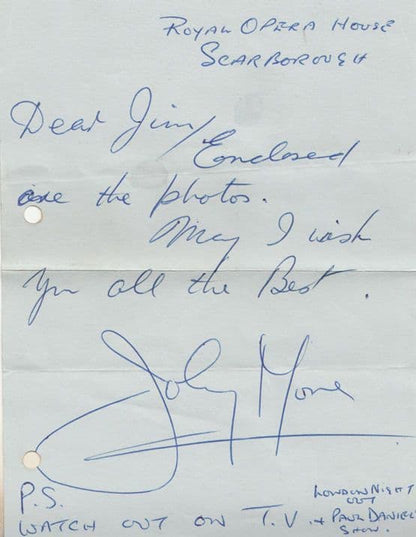 ROYAL OPERA HOUSE
SCARBOROUGH
Dear Jim,
Enclosed
are the photos.
May I wish
You all the Best.
Johny More
P.S.
WATCH OUT ON T.V. LONDON NIGHT
OUT
+ PAUL DANIEL
SHOW.